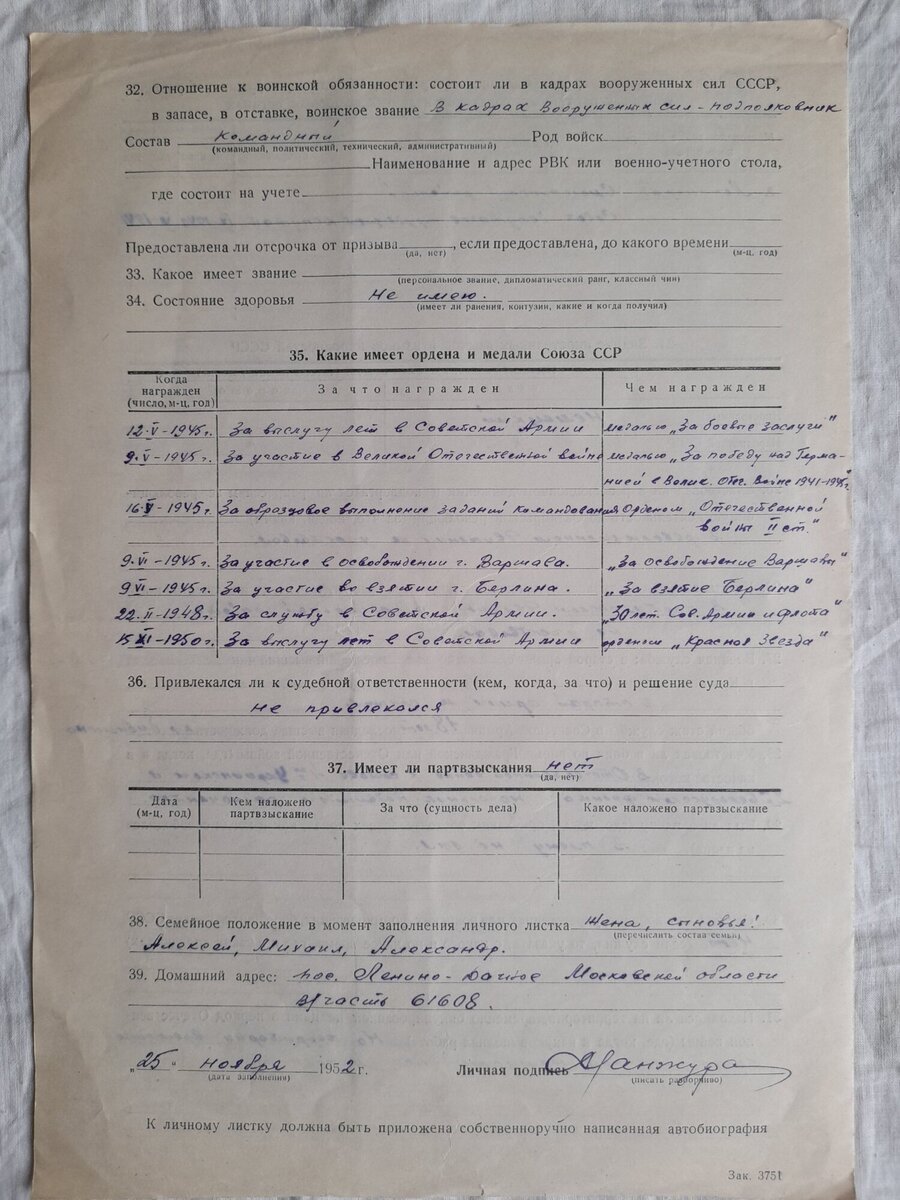 32. Отношение к воинской обязанности: состоит ли в кадрах вооруженных сил СССР,
в запасе, в отставке, воинское звание В кадрах Вооруженных сил - подполковник
Состав командный Род войск
(командный, политический, технический, административный)
Наименование и адрес РВК или военно-учетного стола,
где состоит на учете
Предоставлена ли отсрочка от призыва , если предоставлена, до какого времени
(да, нет) (м-ц, год)
33. Какое имеет звание
(персональное звание, дипломатический ранг, классный чин)
34. Состояние здоровья Не имею.
(имеет ли ранения, контузии, какие и когда получил)
35. Какие имеет ордена и медали Союза ССР
Когда награжден (число, м-ц, год) За что награжден Чем награжден
12.V-1945г. За выслугу лет в Советской Армии медалью „За боевые заслуги"
9.V-1945г. За участие в Великой Отечественной войне медалью „За победу над Герма-
нией в Велик. Отеч. Войне 1941-1945г.
16.V-1945г. За образцовое выполнение заданий командования Орденом „Отечественной
войны II ст."
9.VI-1945г. За участие в освобождении г. Варшава. „За освобождение Варшавы"
9.VI-1945г. За участие во взятии г. Берлина. „За взятие Берлина"
22.II-1948г. За службу в Советской Армии. „30 лет. Сов. Армии и флота"
15.XI-1950г. За выслугу лет в Советской Армии орденом „Красная Звезда"
36. Привлекался ли к судебной ответственности (кем, когда, за что) и решение суда
не привлекался
37. Имеет ли партвзыскания нет
(да, нет)
Дата (м-ц, год) Кем наложено партвзыскание За что (сущность дела) Какое наложено партвзыскание
38. Семейное положение в момент заполнения личного листка Жена, сыновья:
(перечислить состав семьи)
Алексей, Михаил, Александр.
39. Домашний адрес: пос. Ленино-Дачное Московской области
в/часть 61608.
„25" ноября 1952 г. Личная подпись Манжура
(дата заполнения) (писать разборчиво)
К личному листку должна быть приложена собственноручно написанная автобиография
Зак. 3751